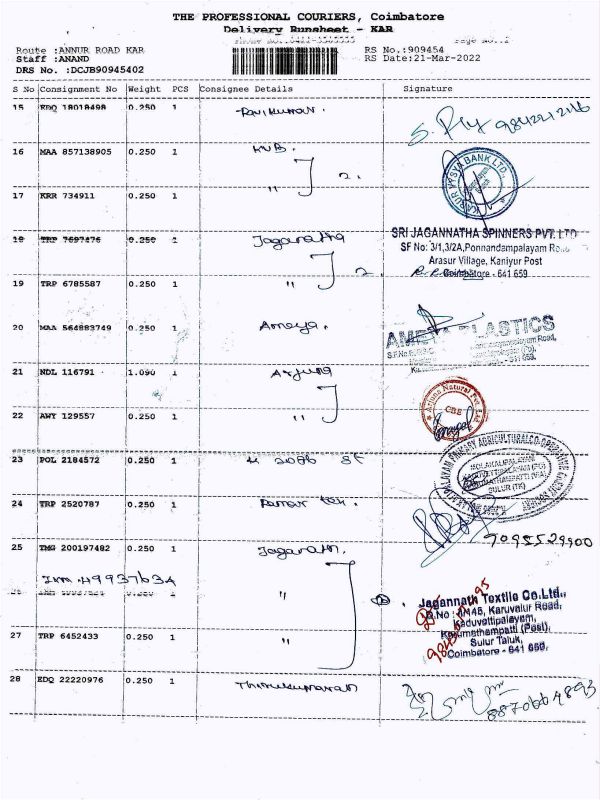 THE PROFESSIONAL COURIERS, Coimbatore
Delivery Runsheet - KAR
Route :ANNUR ROAD KAR
RS No.:909454
Staff :ANAND
RS Date:21-Mar-2022
DRS No. :DCJB90945402
S No Consignment No Weight PCS Consignee Details Signature
15 KDQ 18018498 0.250 1 Ravikumar.
16 MAA 857138905 0.250 1 KVB.
KARUR VYSYA BANK LTD.
17 KRR 734911 0.250 1 " 2.
SRI JAGANNATHA SPINNERS PVT. LTD
SF No: 3/1,3/2A,Ponnandampalayam
Arasur Village, Kaniyur Post
Coimbatore - 641 659
18 TRP 7697476 0.250 1 Jaganatha
19 TRP 6785587 0.250 1 " 2.
20 MAA 564883749 0.250 1 Ameya.
PLASTICS
21 NDL 116791 1.090 1 Arjuna
Arjuna Natural Pvt. Ltd
CBE
22 AWY 129557 0.250 1 "
23 POL 2184572 0.250 1
SULUR (TK)
24 TRP 2520787 0.250 1
7095529900
25 TMG 200197482 0.250 1 Jaganath.
49937634
0.250 1 "
Jagannath Textile Co.Ltd.,
Karuvalur Road,
Kaduvettipalayam,
Karumathampatti (Post),
Sulur Taluk,
Coimbatore - 641 659.
27 TRP 6452433 0.250 1 "
28 EDQ 22220976 0.250 1 Thirukumaran
8870664893